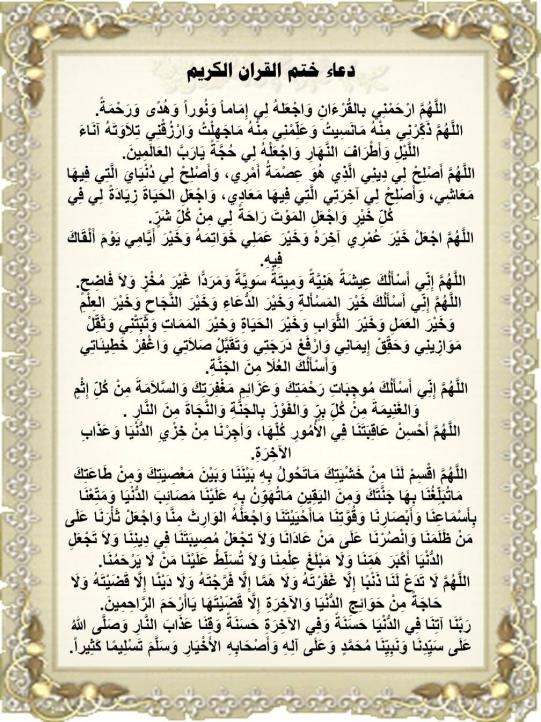 دعاء ختم القران الكريم
اللَّهُمَّ ارْحَمْنِي بِالقُرْءَانِ وَاجْعَلهُ لِي إِمَاماً وَنُوراً وَهُدًى وَرَحْمَةً.
اللَّهُمَّ ذَكِّرْنِي مِنْهُ مَانَسِيتُ وَعَلِّمْنِي مِنْهُ مَاجَهِلْتُ وَارْزُقْنِي تِلاَوَتَهُ آنَاءَ
اللَّيْلِ وَأَطْرَافَ النَّهَارِ وَاجْعَلْهُ لِي حُجَّةً يَارَبَّ العَالَمِينَ.
اللَّهُمَّ أَصْلِحْ لِي دِينِي الَّذِي هُوَ عِصْمَةُ أَمْرِي، وَأَصْلِحْ لِي دُنْيَايَ الَّتِي فِيهَا
مَعَاشِي، وَأَصْلِحْ لِي آخِرَتِي الَّتِي فِيهَا مَعَادِي، وَاجْعَلِ الحَيَاةَ زِيَادَةً لِي فِي
كُلِّ خَيْرٍ وَاجْعَلِ المَوْتَ رَاحَةً لِي مِنْ كُلِّ شَرٍّ.
اللَّهُمَّ اجْعَلْ خَيْرَ عُمْرِي آخِرَهُ وَخَيْرَ عَمَلِي خَوَاتِمَهُ وَخَيْرَ أَيَّامِي يَوْمَ أَلْقَاكَ
فِيهِ.
اللَّهُمَّ إِنِّي أَسْأَلُكَ عِيشَةً هَنِيَّةً وَمِيتَةً سَوِيَّةً وَمَرَدًّا غَيْرَ مُخْزٍ وَلاَ فَاضِحٍ.
اللَّهُمَّ إِنِّي أَسْأَلُكَ خَيْرَ المَسْأَلةِ وَخَيْرَ الدُّعَاءِ وَخَيْرَ النَّجَاحِ وَخَيْرَ العِلْمِ
وَخَيْرَ العَمَلِ وَخَيْرَ الثَّوَابِ وَخَيْرَ الحَيَاةِ وَخيْرَ المَمَاتِ وَثَبِّتْنِي وَثَقِّلْ
مَوَازِينِي وَحَقِّقْ إِيمَانِي وَارْفَعْ دَرَجَتِي وَتَقَبَّلْ صَلاَتِي وَاغْفِرْ خَطِيئَاتِي
وَأَسْأَلُكَ العُلَا مِنَ الجَنَّةِ.
اللَّهُمَّ إِنِّي أَسْأَلُكَ مُوجِبَاتِ رَحْمَتِكَ وَعَزَائِمِ مَغْفِرَتِكَ وَالسَّلاَمَةَ مِنْ كُلِّ إِثْمٍ
وَالغَنِيمَةَ مِنْ كُلِّ بِرٍّ وَالفَوْزَ بِالجَنَّةِ وَالنَّجَاةَ مِنَ النَّارِ .
اللَّهُمَّ أَحْسِنْ عَاقِبَتَنَا فِي الأُمُورِ كُلِّهَا، وَأَجِرْنَا مِنْ خِزْيِ الدُّنْيَا وَعَذَابِ
الآخِرَةِ.
اللَّهُمَّ اقْسِمْ لَنَا مِنْ خَشْيَتِكَ مَاتَحُولُ بِهِ بَيْنَنَا وَبَيْنَ مَعْصِيَتِكَ وَمِنْ طَاعَتِكَ
مَاتُبَلِّغُنَا بِهَا جَنَّتَكَ وَمِنَ اليَقِينِ مَاتُهَوِّنُ بِهِ عَلَيْنَا مَصَائِبَ الدُّنْيَا وَمَتِّعْنَا
بِأَسْمَاعِنَا وَأَبْصَارِنَا وَقُوَّتِنَا مَاأَحْيَيْتَنَا وَاجْعَلْهُ الوَارِثَ مِنَّا وَاجْعَلْ ثَأْرَنَا عَلَى
مَنْ ظَلَمَنَا وَانْصُرْنَا عَلَى مَنْ عَادَانَا وَلاَ تجْعَلْ مُصِيبَتَنَا فِي دِينِنَا وَلاَ تَجْعَلِ
الدُّنْيَا أَكْبَرَ هَمِّنَا وَلَا مَبْلَغَ عِلْمِنَا وَلَا تُسَلِّطْ عَلَيْنَا مَنْ لَا يَرْحَمُنَا.
اللَّهُمَّ لَا تَدَعْ لَنَا ذَنْبًا إِلَّا غَفَرْتَهُ وَلَا هَمًّا إِلَّا فَرَّجْتَهُ وَلَا دَيْنًا إِلَّا قَضَيْتَهُ وَلَا
حَاجَةً مِنْ حَوَائِجِ الدُّنْيَا وَالآخِرَةِ إِلَّا قَضَيْتَهَا يَاأَرْحَمَ الرَّاحِمِينَ.
رَبَّنَا آتِنَا فِي الدُّنْيَا حَسَنَةً وَفِي الآخِرَةِ حَسَنَةً وَقِنَا عَذَابَ النَّارِ وَصَلَّى اللهُ
عَلَى سَيِّدِنَا وَنَبِيِّنَا مُحَمَّدٍ وَعَلَى آلِهِ وَأَصْحَابِهِ الأَخْيَارِ وَسَلَّمَ تَسْلِيمًا كَثِيراً.